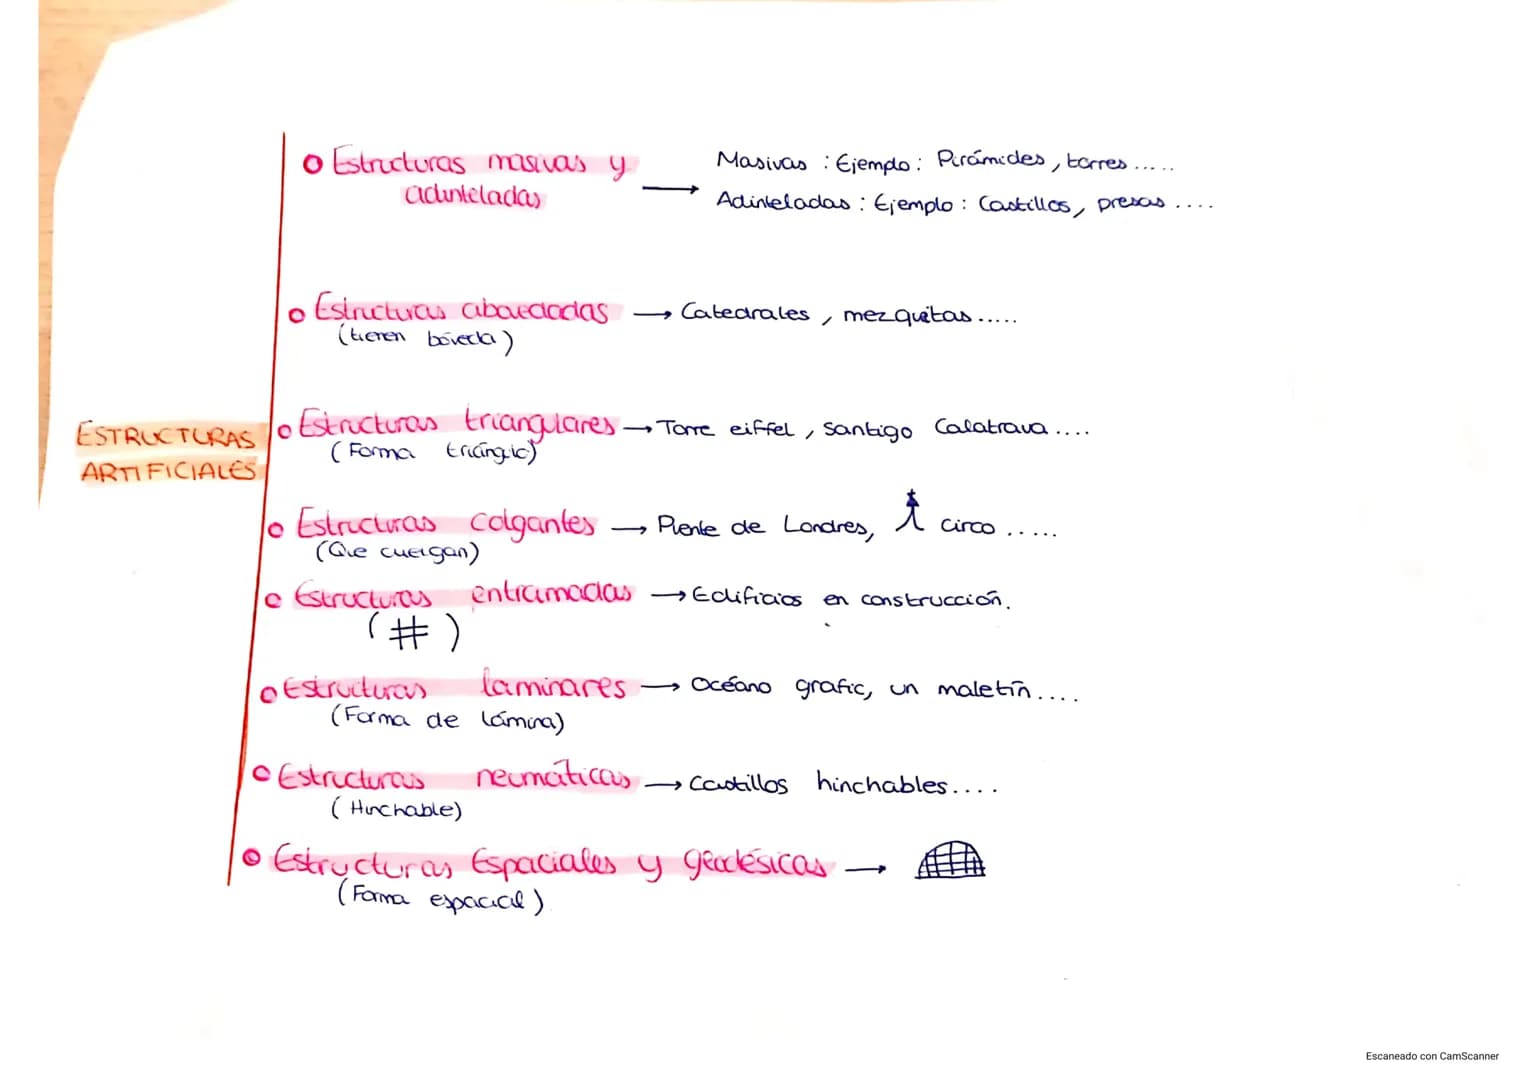 Estructuras masivas y
adinteladas
Masivas : Ejemplo: Pirámides, torres.....
Adinteladas : Ejemplo : Castillos, presas ....
Estructuras abovedadas → Catedrales, mezquitas.....
(tienen bóveda)
ESTRUCTURAS
ARTIFICIALES
Estructuras triangulares → Torre eiffel, Santigo Calatrava ....
(Forma triángulo)
Estructuras colgantes → Puente de Londres, circo .....
(Que cuelgan)
Estructuras entramadas → Edificios en construcción.
(#)
Estructuras laminares → Océano grafic, un maletín....
(Forma de lámina)
Estructuras neumáticas → Castillos hinchables....
(Hinchable)
Estructuras Espaciales y geodésicas →
(Forma espacial)
Escaneado con CamScanner